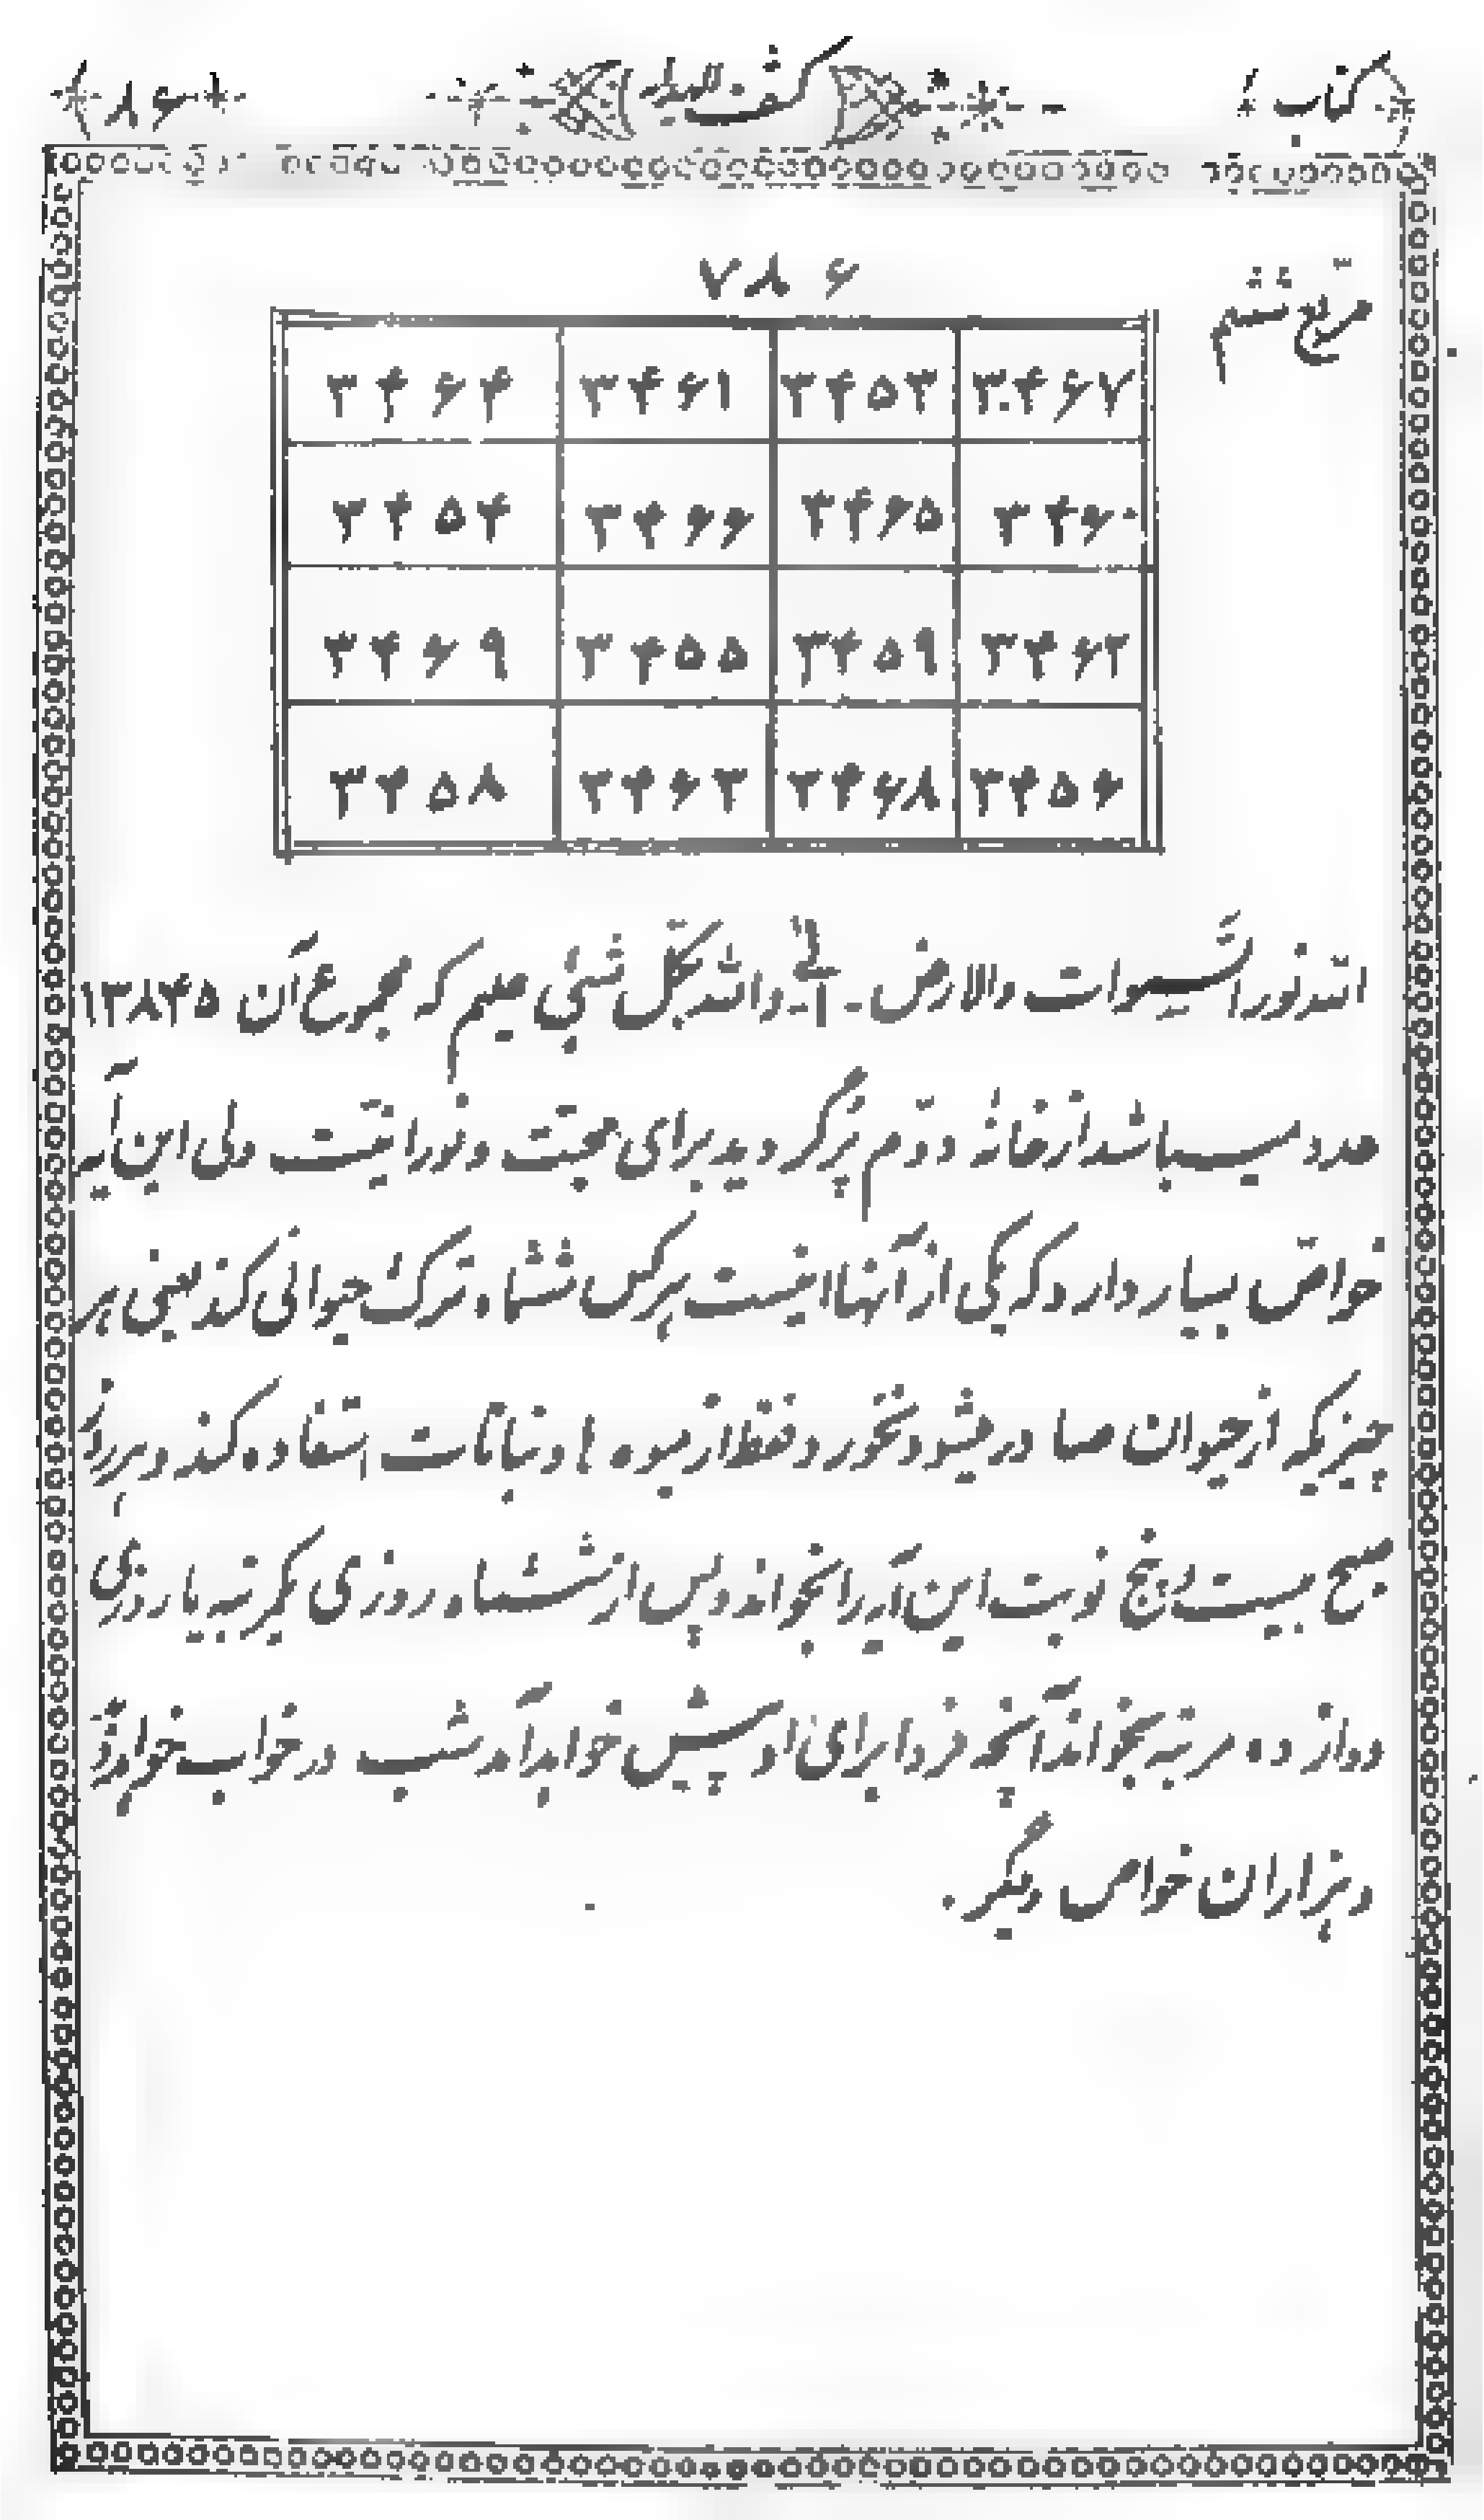 کتاب کشف اللیالی ۸۶
مربّع ششم
۷۸۶
۳۴۶۴ ۳۴۶۱ ۳۴۵۳ ۳۴۶۷
۳۴۵۴ ۳۴۶۶ ۳۴۶۵ ۳۴۶۰
۳۴۶۹ ۳۴۵۵ ۳۴۵۹ ۳۴۶۲
۳۴۵۸ ۳۴۶۳ ۳۴۶۸ ۳۴۵۶
اللّه نور السّموات والارض - الی - واللّه بکلّ شیئی علیم که مجموع آن ۱۳۸۴۵
عدد میباشد از خانهٔ دوّم پُر گردید برای محبّت و نورانیّت ولی این آیه
خواصّ بسیار دارد که یکی از آنها اینست هرکس ششماه ترک حیوانی کند یعنی هر
چیزیکه از حیوان صادر میشود نخورد و فقط از میوه ها و نباتات استفاده کند و هر روز
صبح بیست و پنج نوبت این آیه را بخواند و پس از ششماه روزی یکمرتبه یا روزی
دوازده مرتبه بخواند آنچه فردا برای او پیش خواهد آمد شب در خواب خواهد دید
و هزاران خواص دیگر.